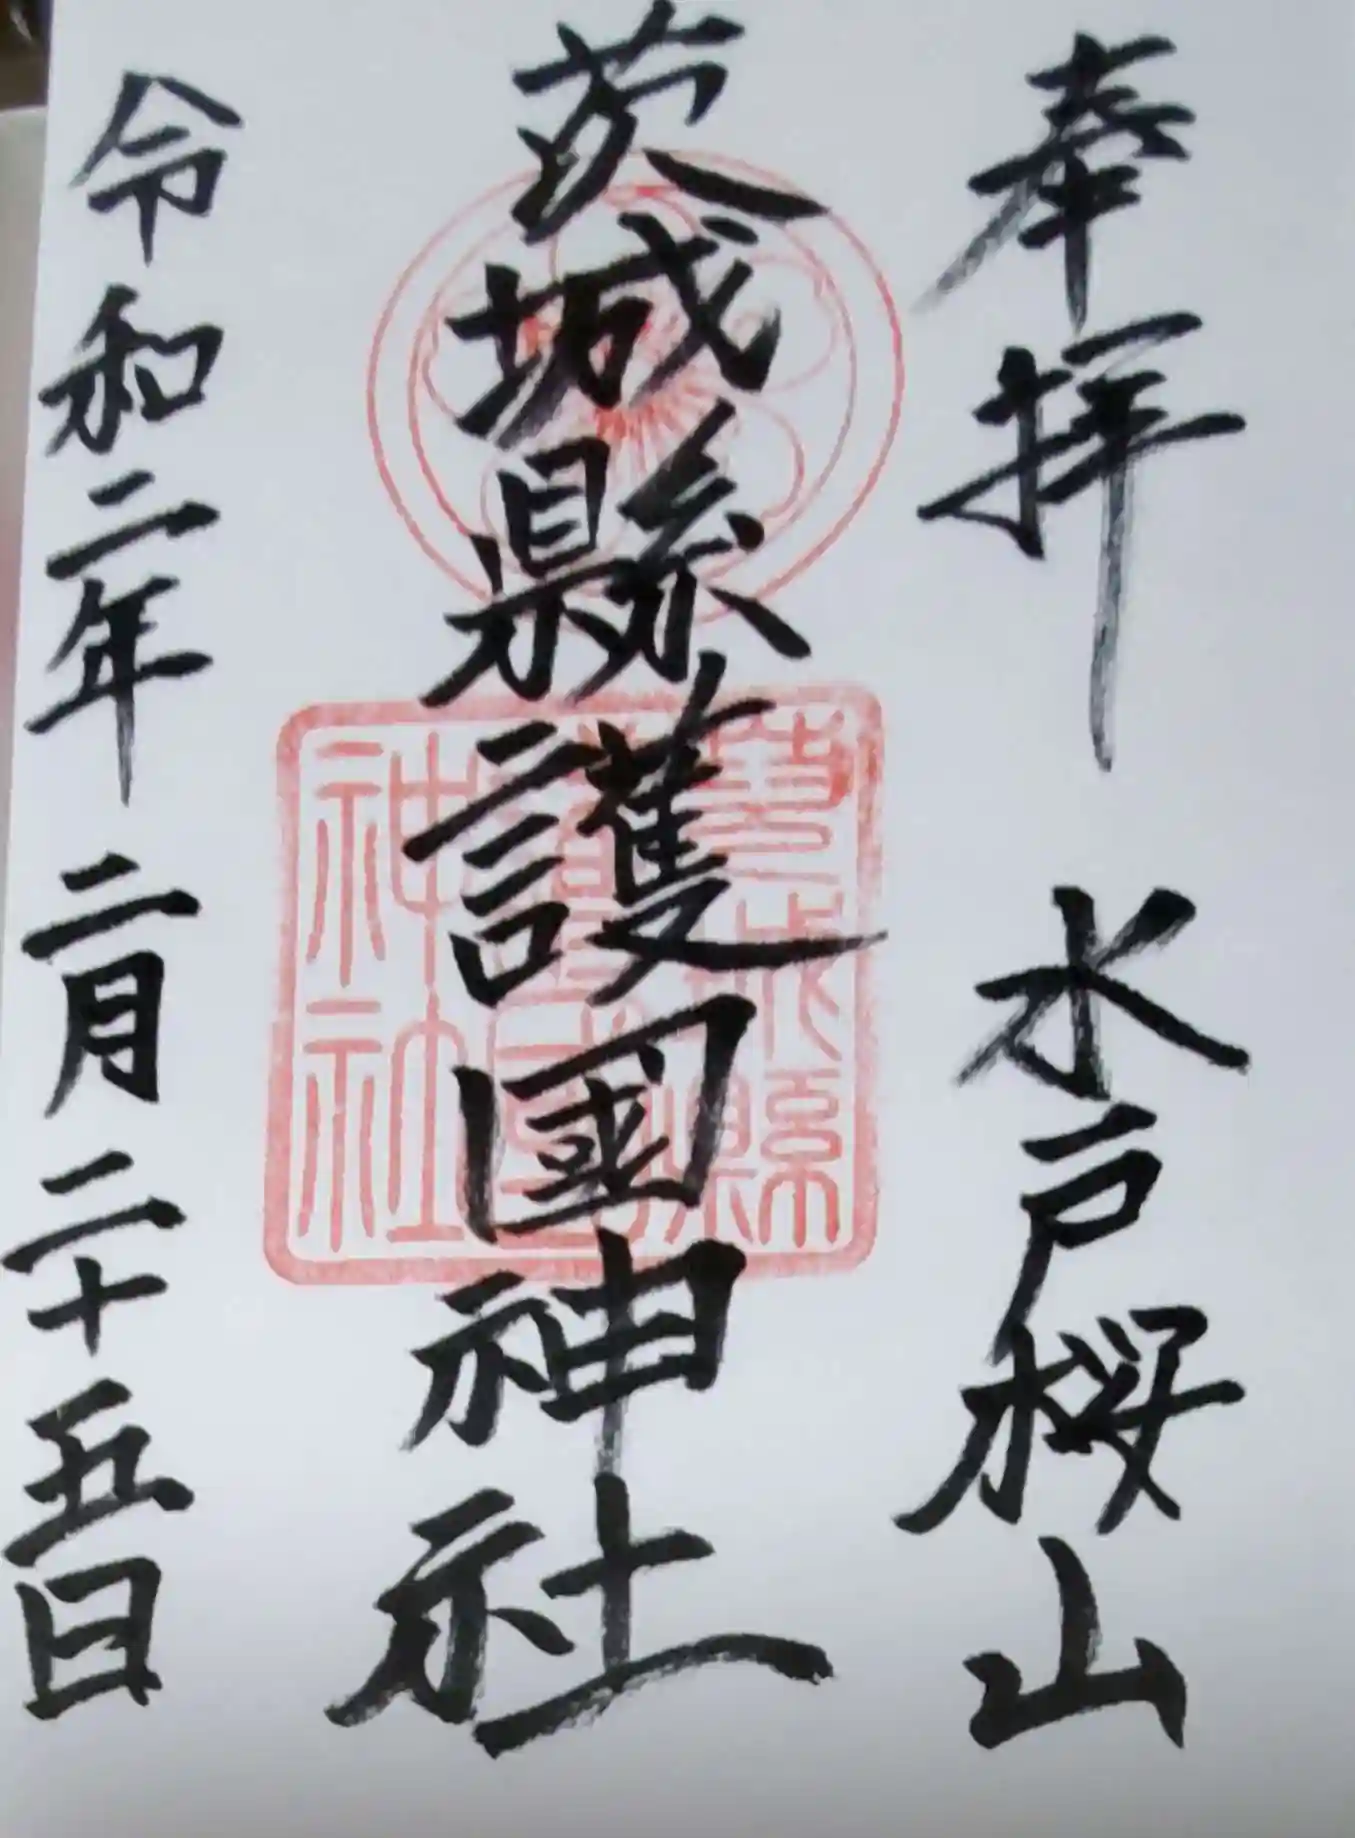 奉拝 水戸桜山
茨城縣護國神社
令和二年 二月 二十五日
茨城縣
護國
神社